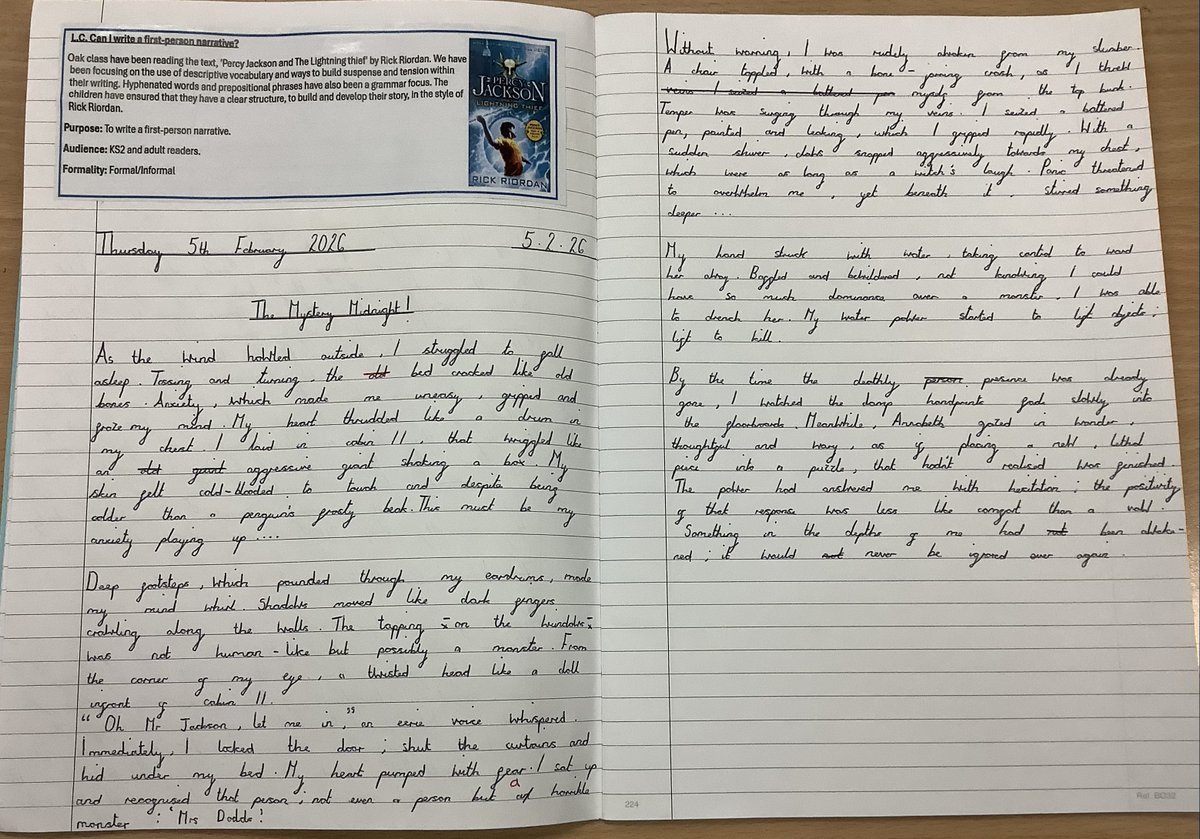 L.C. Can I write a first-person narrative?
Oak class have been reading the text, 'Percy Jackson and The Lightning thief' by Rick Riordan. We have
been focusing on the use of descriptive vocabulary and ways to build suspense and tension within
their writing. Hyphenated words and prepositional phrases have also been a grammar focus. The
children have ensured that they have a clear structure, to build and develop their story, in the style of
Rick Riordan.
Purpose: To write a first-person narrative.
Audience: KS2 and adult readers.
Formality: Formal/Informal
PERCY
JACKSON
LIGHTNING THIEF
RICK RIORDAN
Thursday 5th February 2026 5.2.26
The Mystery Midnight!
As the wind howled outside, I struggled to fall
asleep. Tossing and turning, the old bed cracked like old
bones. Anxiety, which made me uneasy, gripped and
froze my mind. My heart thrudded like a drum in
my chest. I laid in cabin 11, that wriggled like
an old giant aggressive giant shaking a box. My
skin felt cold-blooded to touch and despite being
colder than a penguin's frosty beak. This must be my
anxiety playing up ....
Deep footsteps, which pounded through my eardrums, made
my mind whirl. Shadows moved like dark fingers
crawling along the walls. The tapping - on the windows -
was not human-like but possibly a monster. From
the corner of my eye, a twisted head like a doll
infront of cabin 11.
"Oh Mr Jackson, let me in," an eerie voice whispered.
Immediately, I locked the door; shut the curtains and
hid under my bed. My heart pumped with fear. I sat up
and recognised that person, not even a person but a horrible
monster: 'Mrs Dodds!
Without warning, I was rudely awoken from my slumber.
A chair toppled, with a bone-jarring crash, as I threw
veins I seized a battered pen myself from the top bunk.
Temper was surging through my veins. I seized a battered
pen, painted and leaking, which I gripped rapidly. With a
sudden shiver, claws snapped aggressively towards my chest,
which were as long as a witch's laugh. Panic threatened
to overwhelm me, yet beneath it, stirred something
deeper ...
My hand struck with water, taking control to ward
her away. Baggled and bewildered, not knowing I could
have so much dominance over a monster, I was able
to drench her. My water power started to lift objects;
lift to kill.
By the time the deathly person presence was already
gone, I watched the damp handprints fade slowly into
the floorboards. Meanwhile, Annabeth gazed in wonder,
thoughtful and wary, as if placing a new, lethal
piece into a puzzle, that hadn't realised was finished.
The power had answered me with hesitation; the positivity
of that response was less like comfort than a
Something in the depths of me had not been awake-
ned; it would not never be ignored over again.
224